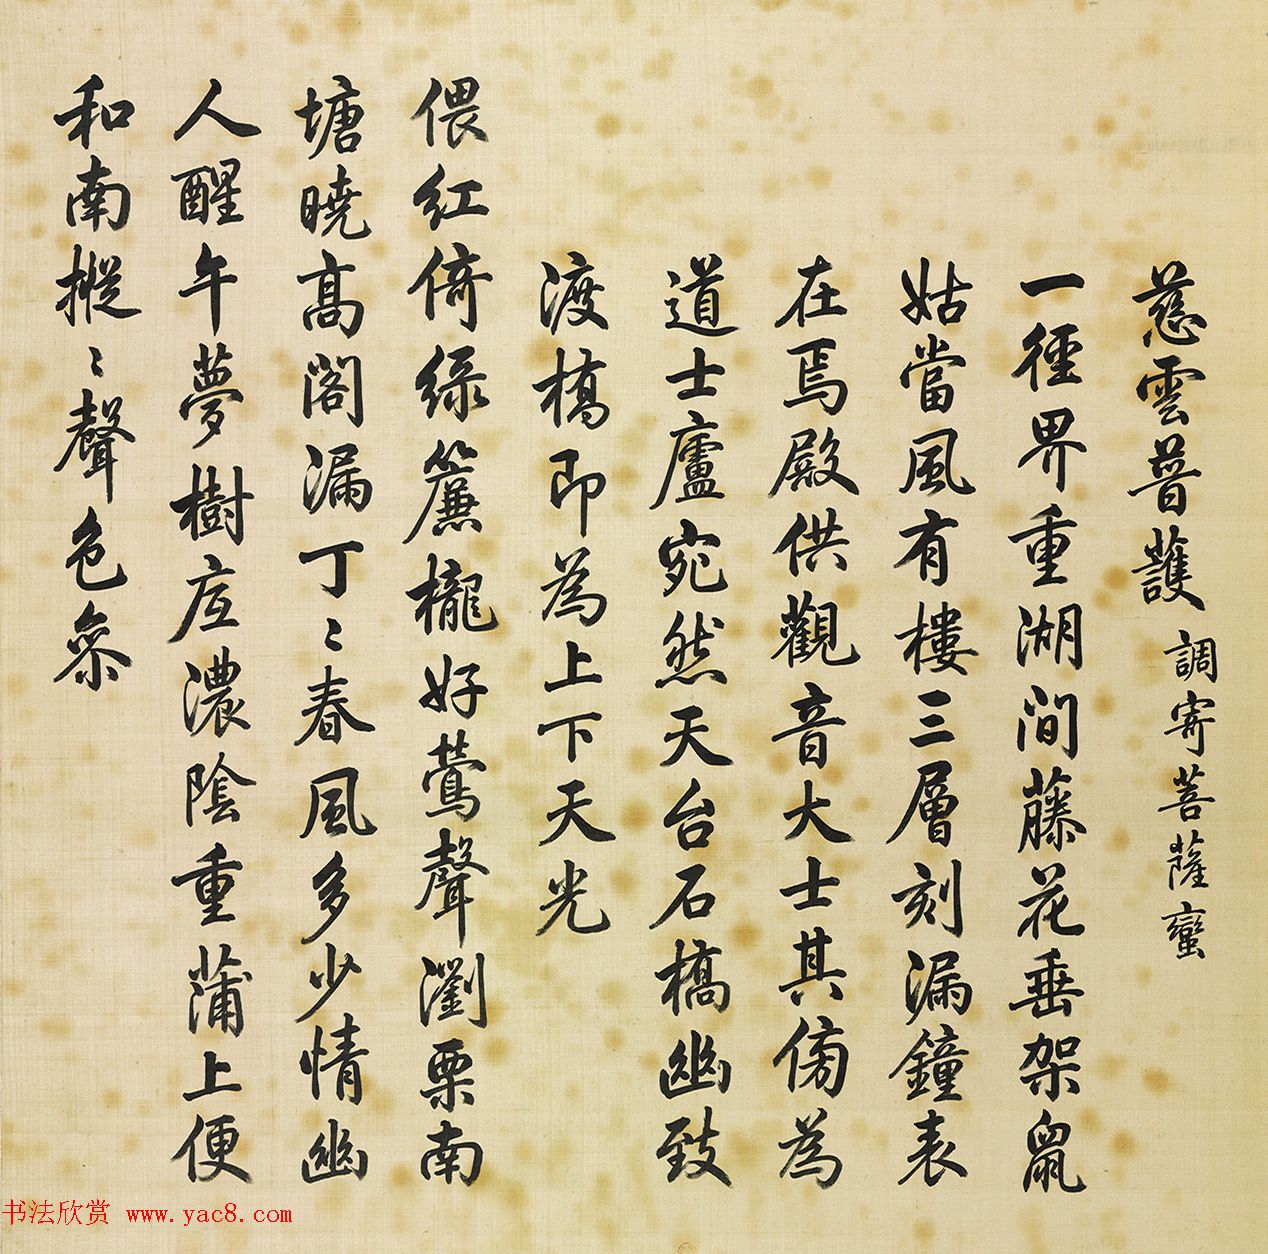 慈雲普護 調寄菩薩蠻
一徑界重湖間藤花垂架鼠
姑當風有樓三層刻漏鐘表
在焉殿供觀音大士其傍為
道士廬宛然天台石橋幽致
渡橋即為上下天光
偎紅倚綠簾櫳好鶯聲瀏栗南
塘曉高閣漏丁〻春風多少情幽
人醒午夢樹底濃陰重蒲上便
和南摐〻聲色參
书法欣赏 www.yac8.com